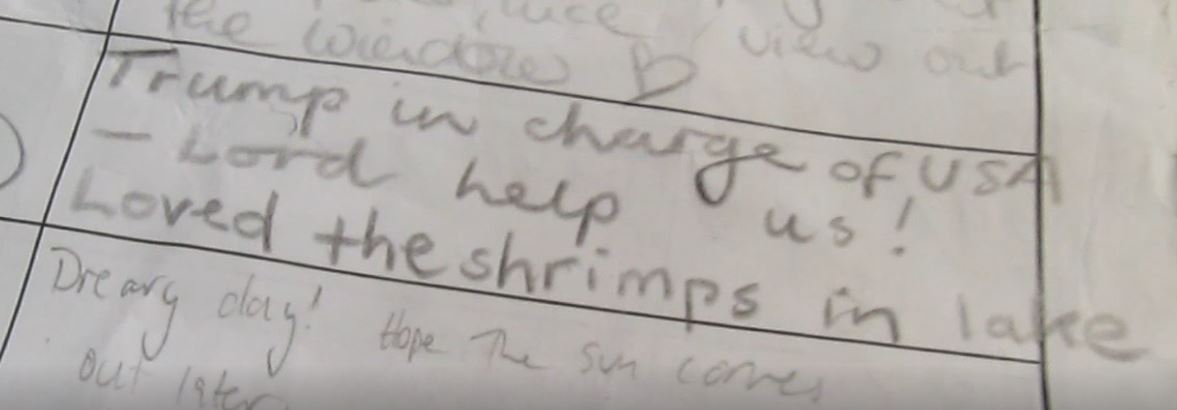 view out
the window
Trump in charge of USA
- Lord help us!
Loved the shrimps in lake
Dreary day! Hope the sun comes
out later